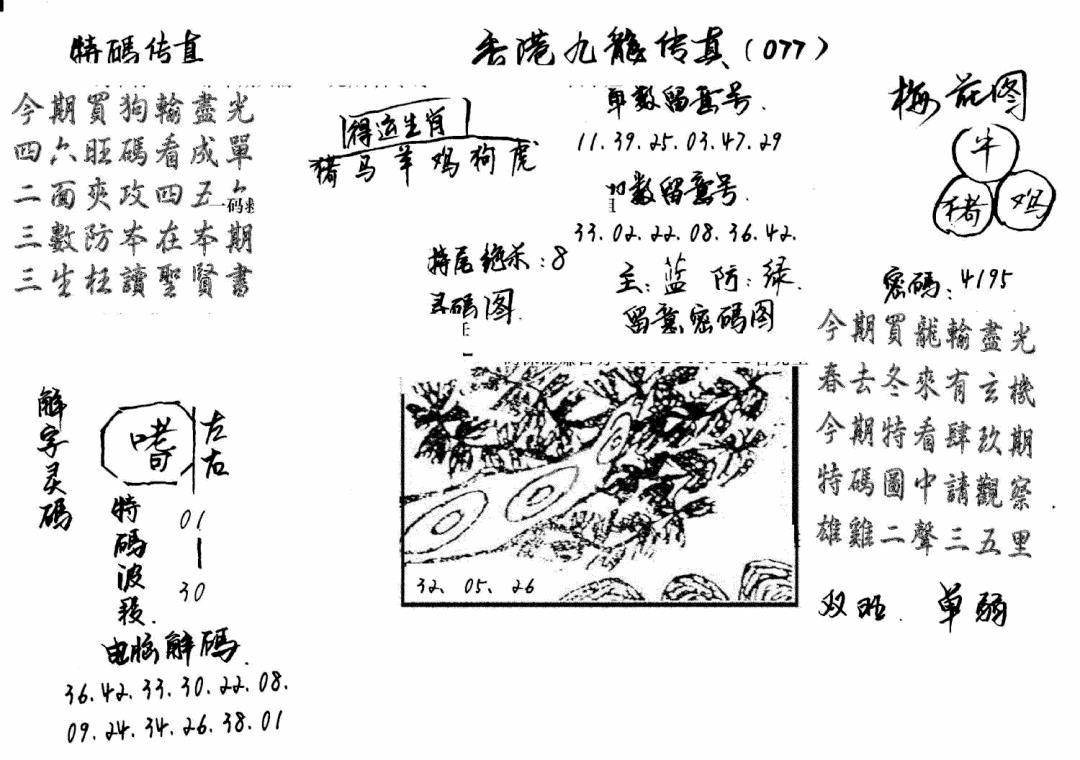 特碼传真
香港九龍传真(077)
今期買狗輸盡光
四六旺碼看成單
二面夾攻四五
一码
三數防本在本期
三生枉讀聖賢書
得运生肖
猪马羊鸡狗虎
单数留意号.
11.39.25.03.47.29
数留意号.
33.02.22.08.36.42.
特尾绝杀:8
主:蓝 防:绿.
碼图.
留意密碼图
梅花图
牛
猪
鸡
密碼:4195
今期買龍輸盡光
春去冬來有玄機
今期特看肆玖期
特碼圖中請觀察
雄雞二聲三五里
双旺. 单弱
解字灵碼
嗜
左右
特碼波段.
01
30
32. 05. 26
电脑解碼.
36.42.33.30.22.08.
09.24.34.26.38.01